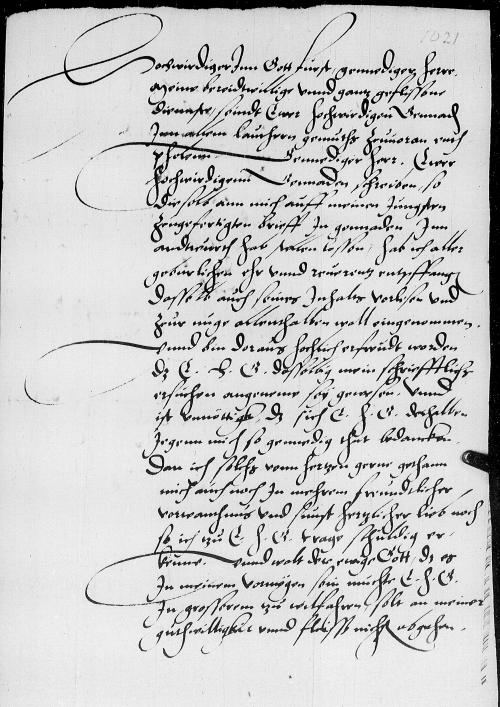 1021
Hochwirdiger Inn Gott furst, gennediger herre.
Meine bereidtwillige unnd gantz geflissene
dienste, seindt Ewer hochwirdigen Gennad
Inn allem lauthern gemuths zuuoran
Gennediger herr. Ewer
hochwirdigenn Gennaden schreiben, so
dieselb ann mich auff meinen Jungsten
zugefertigten brieff In gennaden, Inn
andtwurth hab lassen, hab ich aller
geburlichen ehr unnd reuerentz entpffang
dasselb auch seines Inhalts vorlesen und
zur nuge allenthalben woll eingenommen.
unnd bin doraus hochlich erfreudt worden
dz E. h. G. dasselbig mein schriefftlichs
ersuchen angeneme sey gewesen. unnd
ist unnöttigk dz sich E. h. G. deshalben
gegenn mich so gennedig thut bedancken
Dan ich solchs vonn hertzen gerne gethann
mich auch noch In mehrem freundtlicher
vorwanthnus und sunst hertzlicher lieb nach
so ich zu E. h. G. trage schuldig er-
kenne. unnd wolt der ewige Gott, dz es
In meinem vormögen sein muchte E. h. G.
In grosserem zu willfahren, solt an meiner
guthwilligkeit unnd fleiss nichts abgehen.